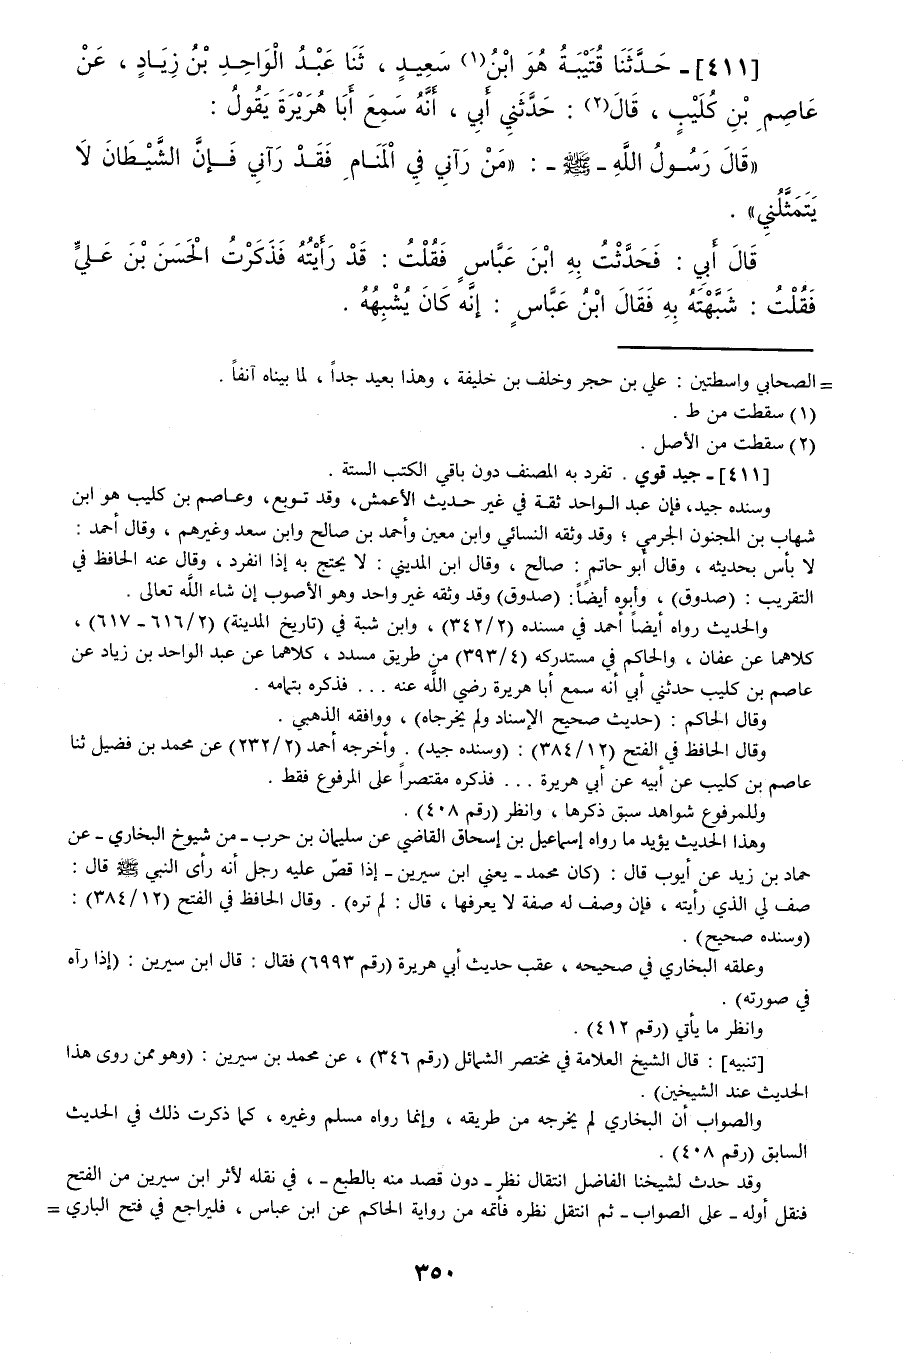 [٤١١] ـ حَدَّثَنَا قُتَيْبَةُ هُوَ ابْنُ(١) سَعِيدٍ ، ثَنَا عَبْدُ الْوَاحِدِ بْنُ زِيَادٍ ، عَنْ
عَاصِمِ بْنِ كُلَيْبٍ ، قَالَ(٢) : حَدَّثَنِي أَبِي ، أَنَّهُ سَمِعَ أَبَا هُرَيْرَةَ يَقُولُ :
«قَالَ رَسُولُ اللَّهِ ـ ﷺ ـ : «مَنْ رَآنِي فِي الْمَنَامِ فَقَدْ رَآنِي فَإِنَّ الشَّيْطَانَ لَا
يَتَمَثَّلُنِي» .
قَالَ أَبِي : فَحَدَّثْتُ بِهِ ابْنَ عَبَّاسٍ فَقُلْتُ : قَدْ رَأَيْتُهُ فَذَكَرْتُ الْحَسَنَ بْنَ عَلِيٍّ
فَقُلْتُ : شَبَّهْتَهُ بِهِ فَقَالَ ابْنُ عَبَّاسٍ : إِنَّه كَانَ يُشْبِهُهُ .
= الصحابي واسطتين : علي بن حجر وخلف بن خليفة ، وهذا بعيد جداً ، لما بيناه آنفاً .
(١) سقطت من ط .
(٢) سقطت من الأصل .
[٤١١] ـ جيد قوي . تفرد به المصنف دون باقي الكتب الستة .
وسنده جيد، فإن عبد الواحد ثقة في غير حديث الأعمش، وقد توبع، وعاصم بن كليب هو ابن
شهاب بن المجنون الجرمي ؛ وقد وثقه النسائي وابن معين وأحمد بن صالح وابن سعد وغيرهم ، وقال أحمد :
لا بأس بحديثه ، وقال أبو حاتم : صالح ، وقال ابن المديني : لا يحتج به إذا انفرد ، وقال عنه الحافظ في
التقريب : (صدوق) ، وأبوه أيضاً: (صدوق) وقد وثقه غير واحد وهو الأصوب إن شاء اللَّه تعالى .
والحديث رواه أيضاً أحمد في مسنده (٣٤٢/٢) ، وابن شبة في (تاريخ المدينة) (٦١٦/٢ ـ ٦١٧) ،
كلاهما عن عفان ، والحاكم في مستدركه (٣٩٣/٤) من طريق مسدد ، كلاهما عن عبد الواحد بن زياد عن
عاصم بن كليب حدثني أبي أنه سمع أبا هريرة رضي اللَّه عنه . . . فذكره بتمامه .
وقال الحاكم : (حديث صحيح الإسناد ولم يخرجاه) ، ووافقه الذهبي .
وقال الحافظ في الفتح (٣٨٤/١٢) : (وسنده جيد) . وأخرجه أحمد (٢٣٢/٢) عن محمد بن فضيل ثنا
عاصم بن كليب عن أبيه عن أبي هريرة . . . فذكره مقتصراً على المرفوع فقط .
وللمرفوع شواهد سبق ذكرها ، وانظر (رقم ٤٠٨) .
وهذا الحديث يؤيد ما رواه إسماعيل بن إسحاق القاضي عن سليمان بن حرب ـ من شيوخ البخاري ـ عن
حماد بن زيد عن أيوب قال : (كان محمد ـ يعني ابن سيرين ـ إذا قصّ عليه رجل أنه رأى النبي ﷺ قال :
صف لي الذي رأيته ، فإن وصف له صفة لا يعرفها ، قال : لم تره) . وقال الحافظ في الفتح (٣٨٤/١٢) :
(وسنده صحيح) .
وعلقه البخاري في صحيحه ، عقب حديث أبي هريرة (رقم ٦٩٩٣) فقال : قال ابن سيرين : (إذا رآه
في صورته) .
وانظر ما يأتي (رقم ٤١٢) .
[تنبيه] : قال الشيخ العلامة في مختصر الشمائل (رقم ٣٤٦) ، عن محمد بن سيرين : (وهو ممن روى هذا
الحديث عند الشيخين) .
والصواب أن البخاري لم يخرجه من طريقه ، وإنما رواه مسلم وغيره ، كما ذكرت ذلك في الحديث
السابق (رقم ٤٠٨) .
وقد حدث لشيخنا الفاضل انتقال نظر ـ دون قصد منه بالطبع ـ ، في نقله لأثر ابن سيرين من الفتح
فنقل أوله ـ على الصواب ـ ثم انتقل نظره فأتمه من رواية الحاكم عن ابن عباس ، فليراجع في فتح الباري =
٣٥٠